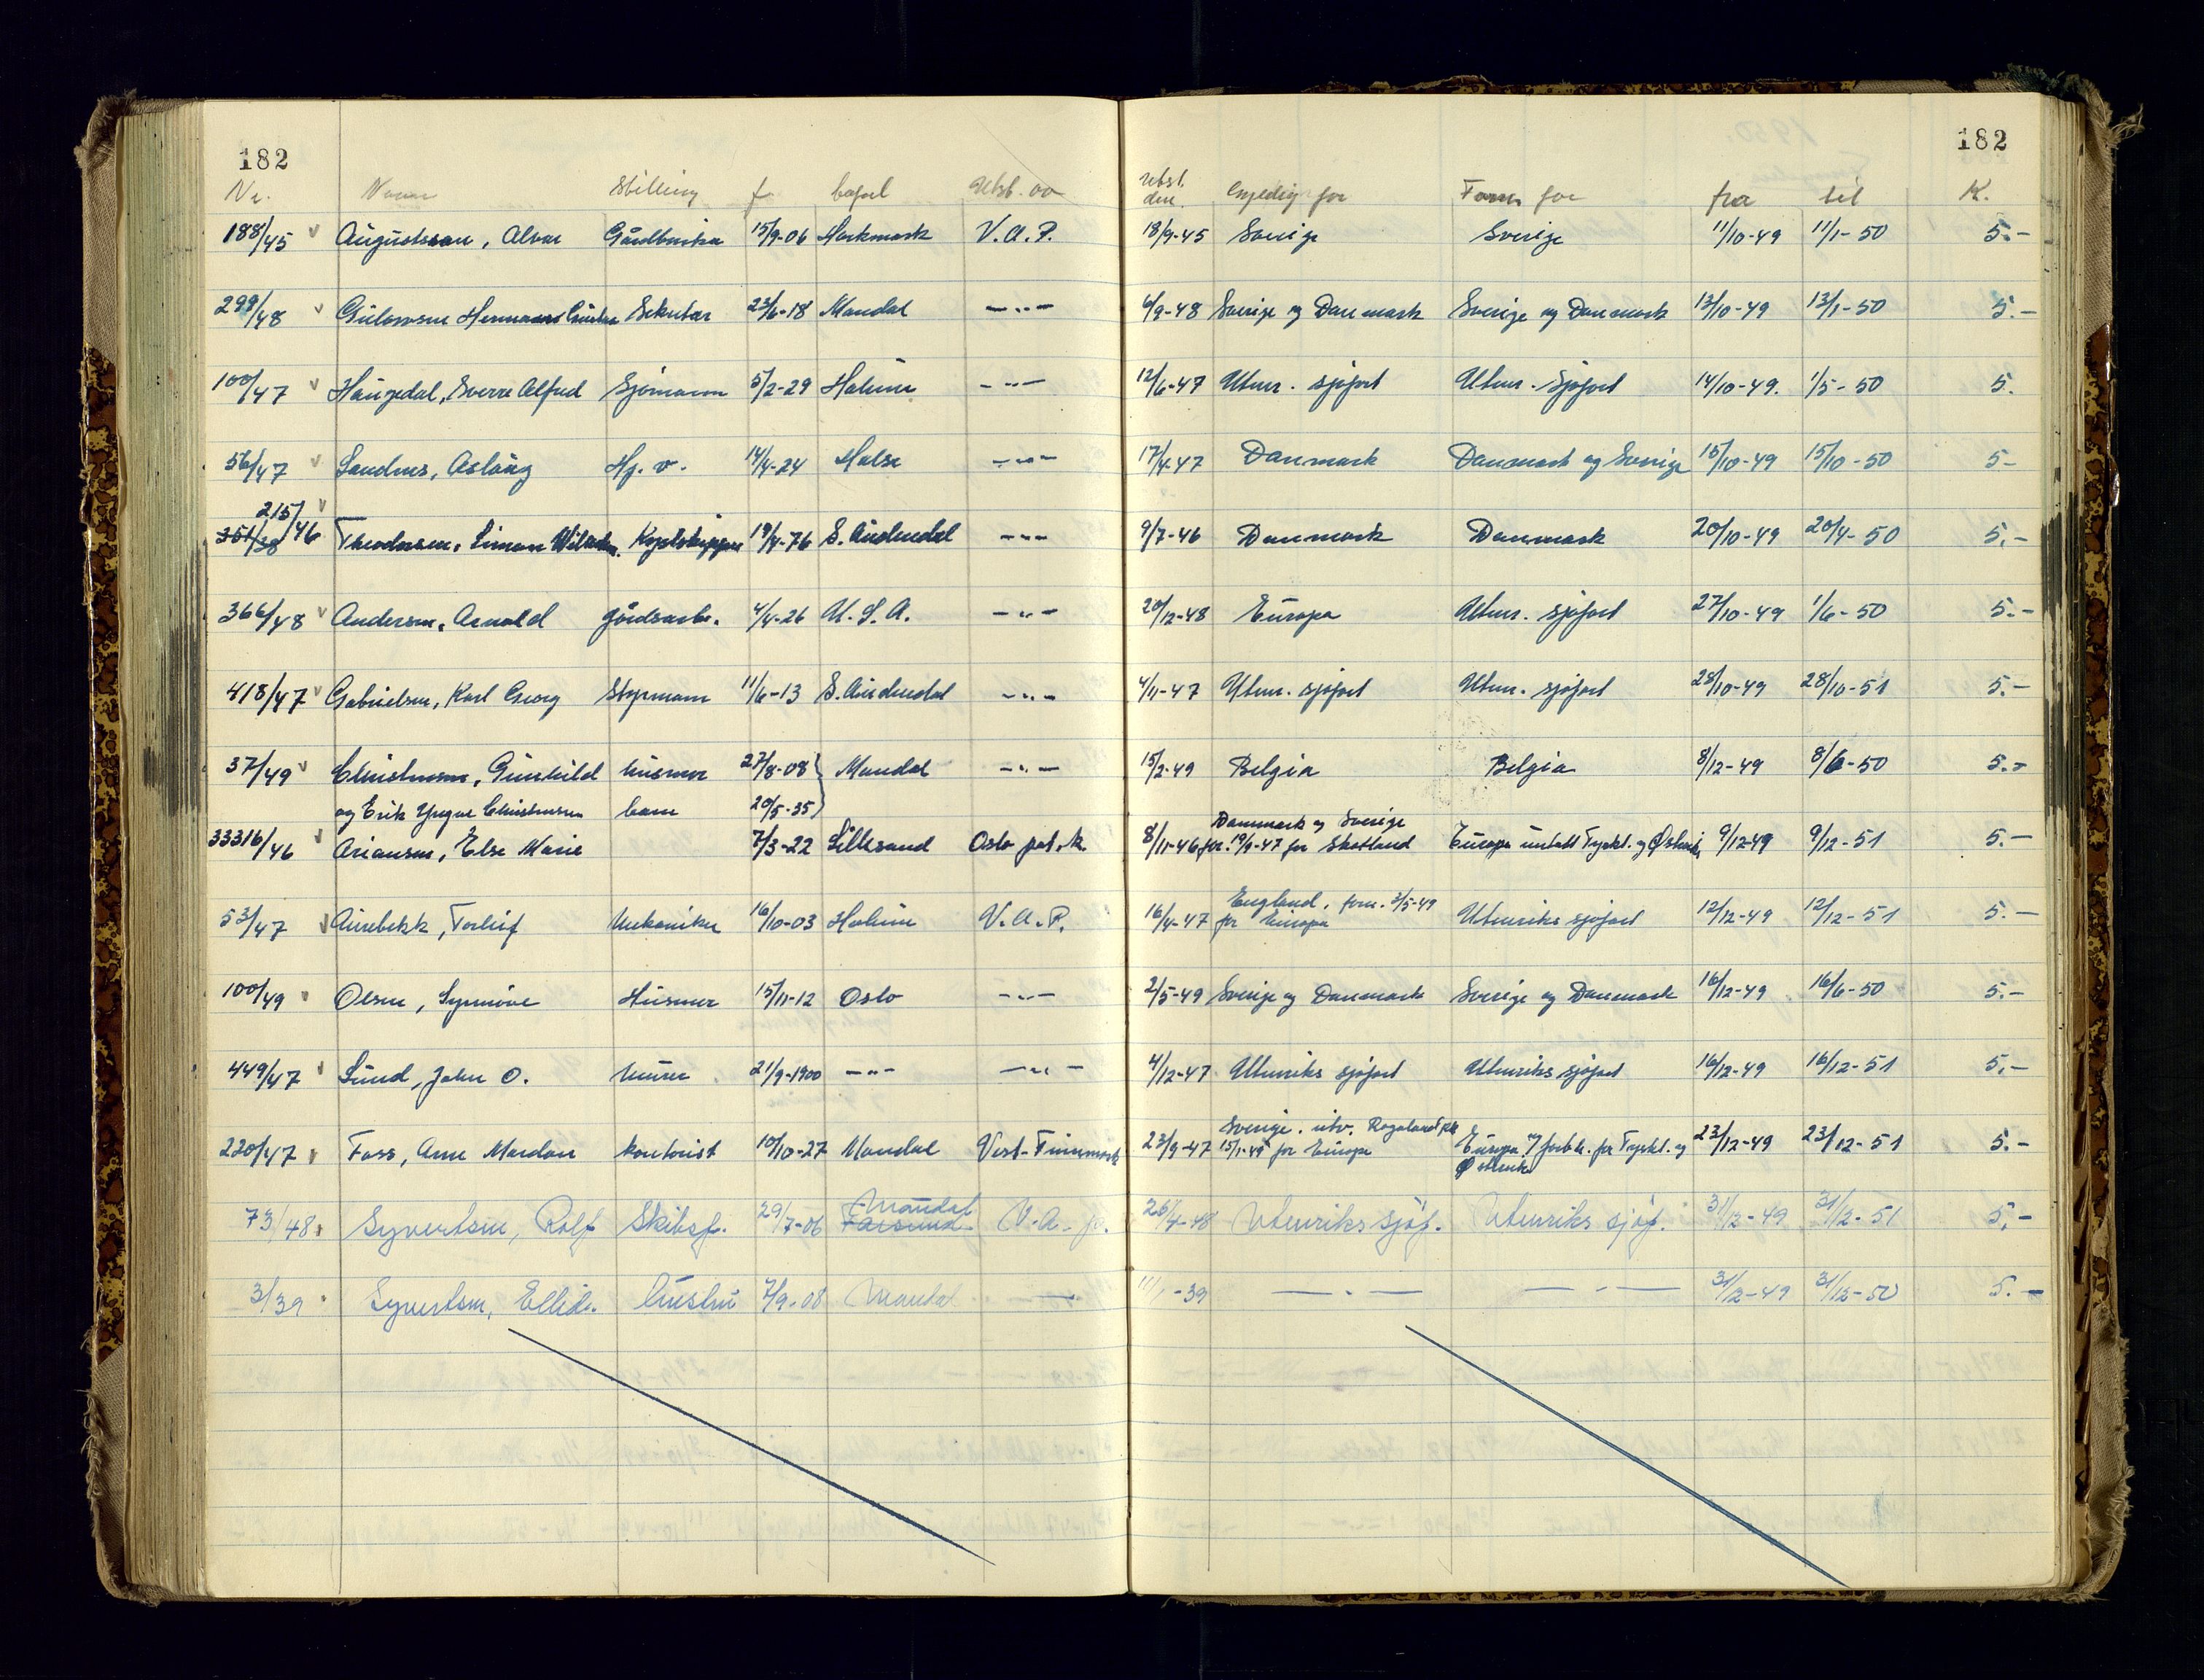 182 182
Nr. Navn Stilling f. bopel Utst. av Utst. den Gyldig for Forn. for fra til K.
188/45 Augustsson, Alvar 15/9-06 Harkmark V.A.P. 18/9-45 Sverige Sverige 11/10-49 11/1-50 5.-
299/48 Sekretær 23/6-18 Mandal -"- 6/9-48 Sverige og Danmark Sverige og Danmark 13/10-49 13/1-50 5.-
100/47 Haugedal, Sverre Alfred Sjömann 5/2-29 Holum -"- 12/6-47 Utenr. sjöfart Utenr. Sjöfart 14/10-49. 1/5-50 5.
56/47 Sandnes, Aslaug Hj. v. 14/4-24 Halse -"- 17/4-47 Danmark Danmark og Sverige 15/10-49 15/10-50 5-
215/
351/38 46 Theodorsen, Simon Kystskipper 19/4-76 S. Audnedal -"- 9/7-46 Danmark Danmark 20/10-49 20/4-50 5.-
366/48 Andersen, Arnold gårdsarb. 4/4-26 U.S.A. -"- 20/12-48 Europa Utenr. sjöfart 27/10-49 1/6-50 5.-
418/47 Gabrielsen, Karl Georg Styrmann 11/6-13 S. Audnedal -"- 4/11-47 Utenr. sjöfart Utenr. sjöfart 28/10-49 28/10-51 5.-
37/49 Christensen, Gunhild husmor 27/8-08 Mandal -"- 15/2-49 Belgia Belgia 8/12-49 8/6-50 5.-
og Erik Yngve Christensen barn 20/5-35
Danmark og Sverige
33316/46 Ariansen, Else Marie 7/3-22 Lillesand Oslo pol.k. 8/11-46 for. 19/9-47 for Skotland Europa untatt Tyskl. og Østerrike 9/12-49 9/12-51 5.-
England, forn. 3/5-49
53/47 Aurebekk, Torleif Mekaniker 16/10-03 Holum V.A.P. 16/4-47 for Europa Utenriks sjöfart 12/12-49 12/12-51 5.-
100/49 Olsen, Synnöve Husmor 15/11-12 Oslo -"- 2/5-49 Sverige og Danmark Sverige og Danmark 16/12-49 16/6-50 5.-
449/47 Lund, John O. Murer 21/9-1900 -"- -"- 4/12-47 Utenriks sjöfart Utenriks sjöfart 16/12-49 16/12-51 5.-
Sverige. utv. Rogaland pk
220/47 Foss, Arne Mardon kontorist 10/10-27 Mandal Vest-Finnmark 23/9-47 15/1-49 for Europa Europa forb. for Tyskl. og 23/12-49 23/12-51 5.-
Østerrike
Mandal
73/48 Syvertsen, Rolf Skibsf. 29/7-06 Farsund V.A.p. 26/4-48 Utenriks sjöf. Utenriks sjöf. 31/12-49 31/12-51 5.-
3/39 Syvertsen, hustru 7/9-08 Mandal -"- 11/1-39 -"- -"- 31/12-49 31/12-50 5.-